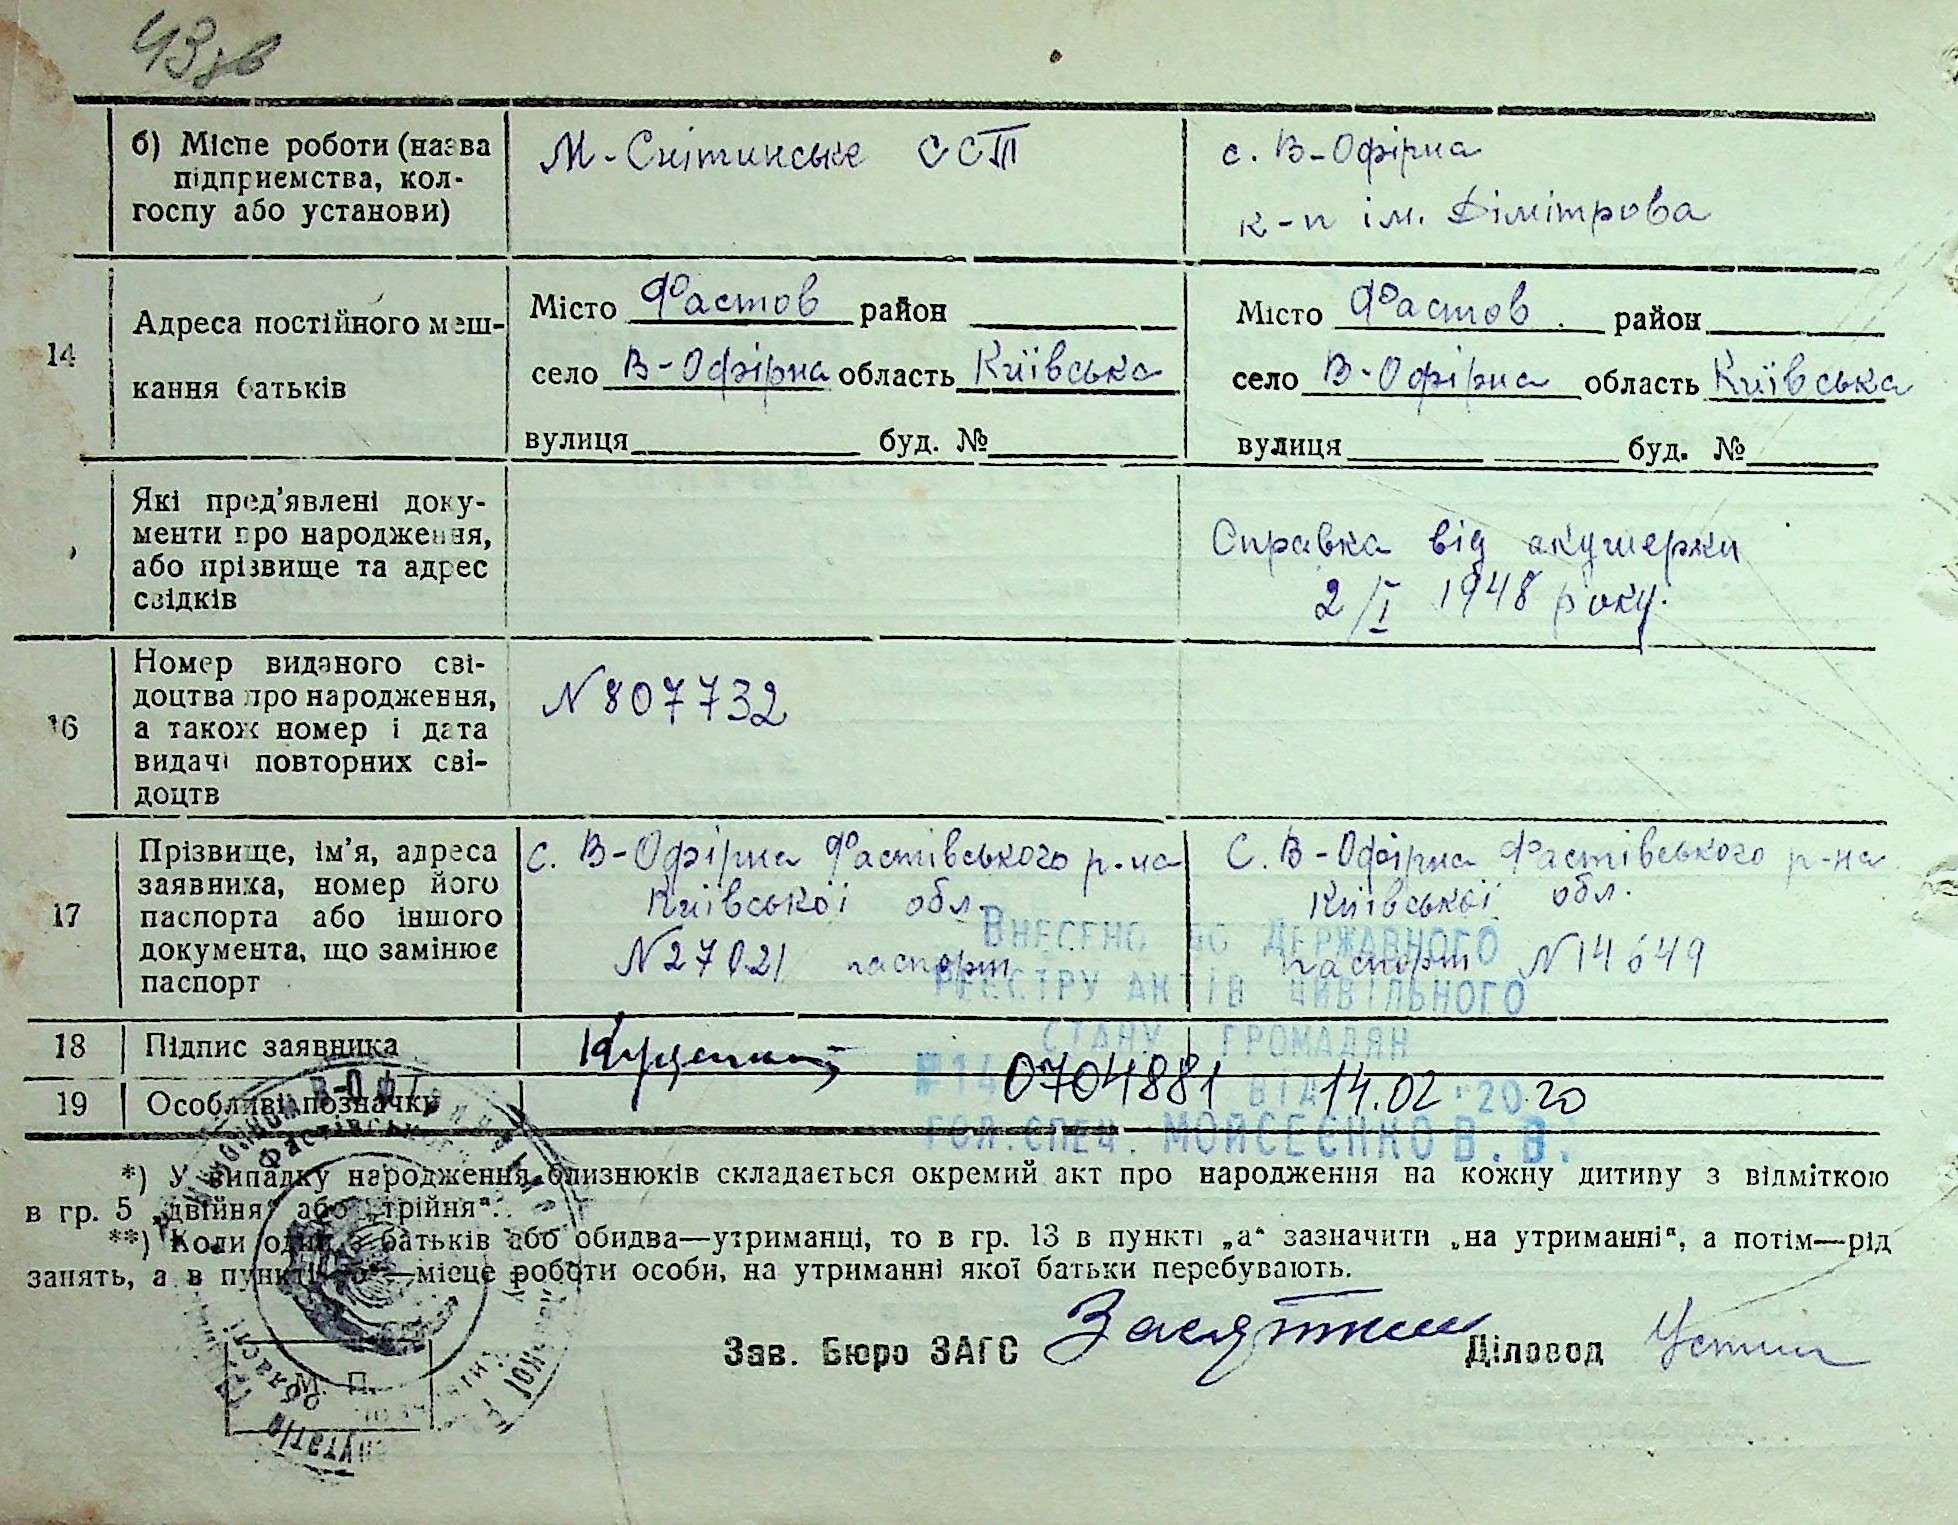 43зв
б) Місце роботи (назва
підприємства, кол-
госпу або установи)
М-Снітинське ССТ
с. В-Офірна
к-п ім. Дімітрова
14
Адреса постійного меш-
кання батьків
Місто Фастов район
село В-Офірна область Київська
вулиця буд. №
Місто Фастов район
село В-Офірна область Київська
вулиця буд. №
Які пред'явлені доку-
менти про народження,
або прізвище та адрес
свідків
Справка від акушерки
2/I 1948 року.
16
Номер виданого сві-
доцтва про народження,
а також номер і дата
видачі повторних сві-
доцтв
N 807732
17
Прізвище, ім'я, адреса
заявника, номер його
паспорта або іншого
документа, що замінює
паспорт
с. В-Офірна Фастівського р-на
Київської обл.
N 27021 паспорт
С. В-Офірна Фастівського р-на
Київської обл.
паспорт N 14649
ВНЕСЕНО ДО ДЕРЖАВНОГО
РЕЄСТРУ АКТІВ ЦИВІЛЬНОГО
СТАНУ ГРОМАДЯН
18 Підпис заявника
№14 0704881 ВІД 14.02.2020
19 Особливі позначки
ГОЛ.СПЕЦ. МОЙСЕЄНКО В.В.
*) У випадку народження близнюків складається окремий акт про народження на кожну дитину з відміткою
в гр. 5 „двійня“ або „трійня“.
**) Коли один з батьків або обидва—утриманці, то в гр. 13 в пункті „а“ зазначити „на утриманні“, а потім—рід
занять, а в пункті „б“—місце роботи особи, на утриманні якої батьки перебувають.
Зав. Бюро ЗАГС
Діловод
М. П.